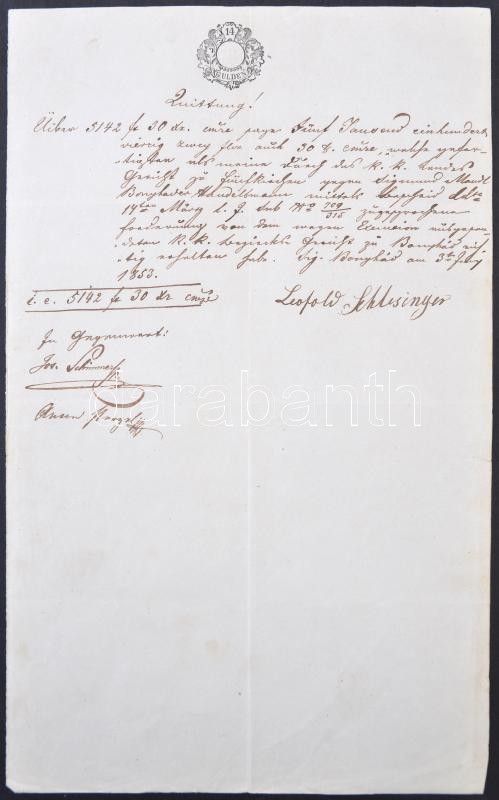 14
GULDEN
Quittung!
Über 5142 fr 30 xr. cmze sage Fünf Tausend einhundert
vierzig zwey flr auch 30 x. cmze, welche gefer-
tigten als meine durch das k. k. Landes
Gericht zu Fünfkirchen gegen Sigmund Mandl
Bonyhader Handelsmann mittels Bescheid ddo
14ten März l. J. sub No 109/315 zugesprochene
Forderung von dem wegen Execution
k. k. Bezirks Gericht zu Bonyhád rich-
tig erhalten hab. Sig. Bonyhád am 3ten
1853.
i. e. 5142 fr 30 xr cmze
Leopold Schlesinger
In Gegenwart:
Jos.
darabanth